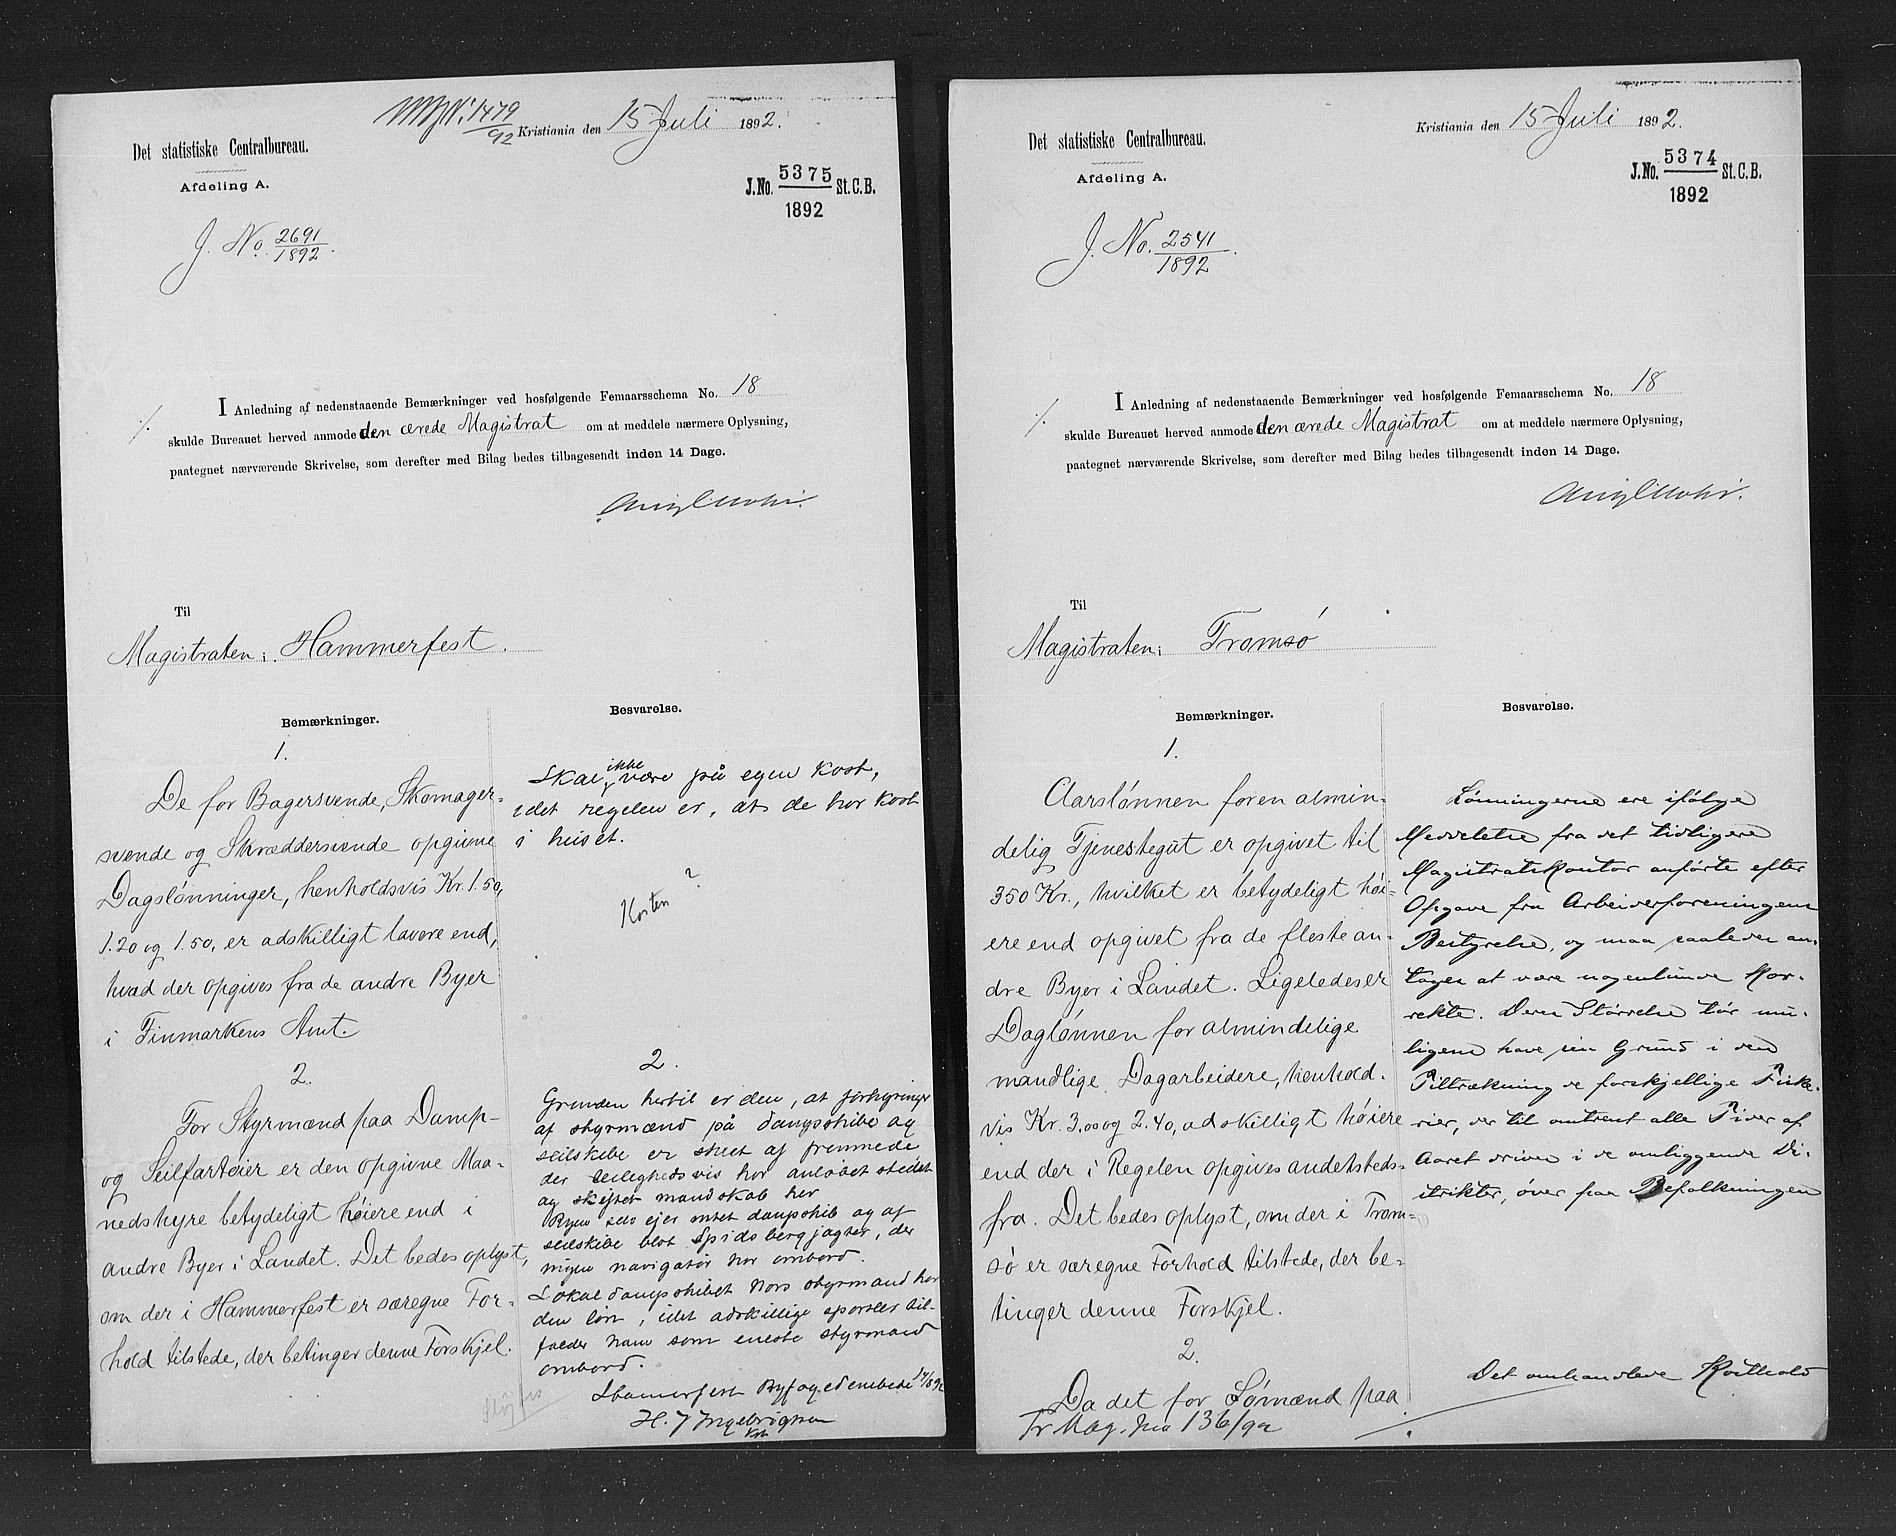 No. 1479
92
Kristiania den 15 Juli 1892.
Det statistiske Centralbureau.
Afdeling A.
J. No. 5375 St. C. B.
1892
J. No. 2691
1892.
I Anledning af nedenstaaende Bemærkninger ved hosfølgende Femaarsschema No. 18
./.
skulde Bureauet herved anmode den ærede Magistrat om at meddele nærmere Oplysning,
paategnet nærværende Skrivelse, som derefter med Bilag bedes tilbagesendt inden 14 Dage.
Til
Magistraten i Hammerfest.
Bemærkninger.
1.
De for Bagersvende, Skomager-
svende og Skræddersvende opgivne
Daglønninger, henholdsvis Kr. 1.50,
1.20 og 1.50, er adskilligt lavere end,
hvad der opgives fra de andre Byer
i Finmarkens Amt.
2.
For Styrmænd paa Damp-
og Seilfartøier er den opgivne Maa-
nedshyre betydeligt høiere end i
andre Byer i Landet. Det bedes oplyst,
om der i Hammerfest er særegne For-
hold tilstede, der betinger denne Forskjel.
Besvarelse.
Skal ikke være på egen kost,
idet regelen er, at de har kost
i huset.
?
Kosten
2.
Grunden hertil er den, at forhyringer
af styrmænd på dampskibe og
seilskibe er skeet af fremmede
der leilighedsvis har anløbet stedet
og skiftet mandskab her
Byen selv ejer intet dampskib og af
seilskibe blot Spidsbergjagter, der
ingen navigatør har ombord.
Lokaldampskibet Nors styrmand har
den løn, idet adskillige sportler til-
falder ham som eneste styrmand
ombord.
Hammerfest Byfogedembede
H. J Ingebrigtsen
Kristiania den 15 Juli 1892.
Det statistiske Centralbureau.
Afdeling A.
J. No. 5374 St. C. B.
1892
J. No. 2541
1892.
I Anledning af nedenstaaende Bemærkninger ved hosfølgende Femaarsschema No. 18
./.
skulde Bureauet herved anmode den ærede Magistrat om at meddele nærmere Oplysning,
paategnet nærværende Skrivelse, som derefter med Bilag bedes tilbagesendt inden 14 Dage.
Til
Magistraten i Tromsø
Bemærkninger.
1.
Aarslønnen for en almin-
delig Tjenestegut er opgivet til
350 Kr., hvilket er betydeligt høi-
ere end opgivet fra de fleste an-
dre Byer i Landet. Ligeledes er
Daglønnen for almindelige
mandlige Dagarbeidere, henhold-
vis Kr. 3,00 og 2.40, adskilligt høiere
end der i Regelen opgives andetsteds-
fra. Det bedes oplyst, om der i Trom-
sø er særegne Forhold tilstede, der be-
tinger denne Forskjel.
2.
Da det for Sømænd paa
Tr Mag. Jno 136/92
Besvarelse.
Lønningerne ere ifølge
Meddelelse fra det tidligere
Magistratskontor anførte efter
Opgave fra Arbeiderforeningens
Bestyrelse, og maa saaledes an-
tages at være nogenlunde kor-
rekte. Deres Størrelse tør mu-
ligens have sin Grund i den
Tiltrækning de forskjellige Fiske-
rier, der til omtrent alle Tider af
Aaret drives i de omliggende Di-
strikter, øver paa Befolkningen
Det omhandlede Kvilhold